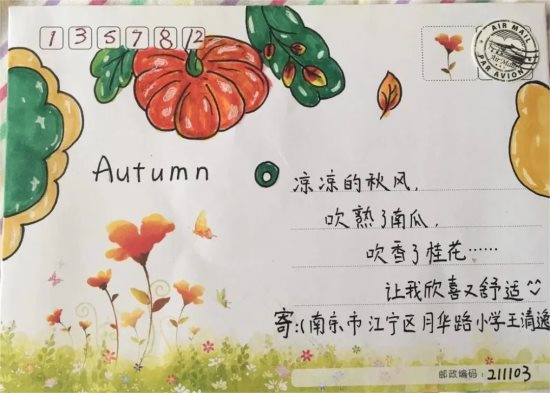 1 3 5 7 8 12
AIR MAIL
PAR AVION
Autumn
凉凉的秋风，
吹熟了南瓜，
吹香了桂花……
让我欣喜又舒适
寄:(南京市江宁区月华路小学王清逸
邮政编码: 211103